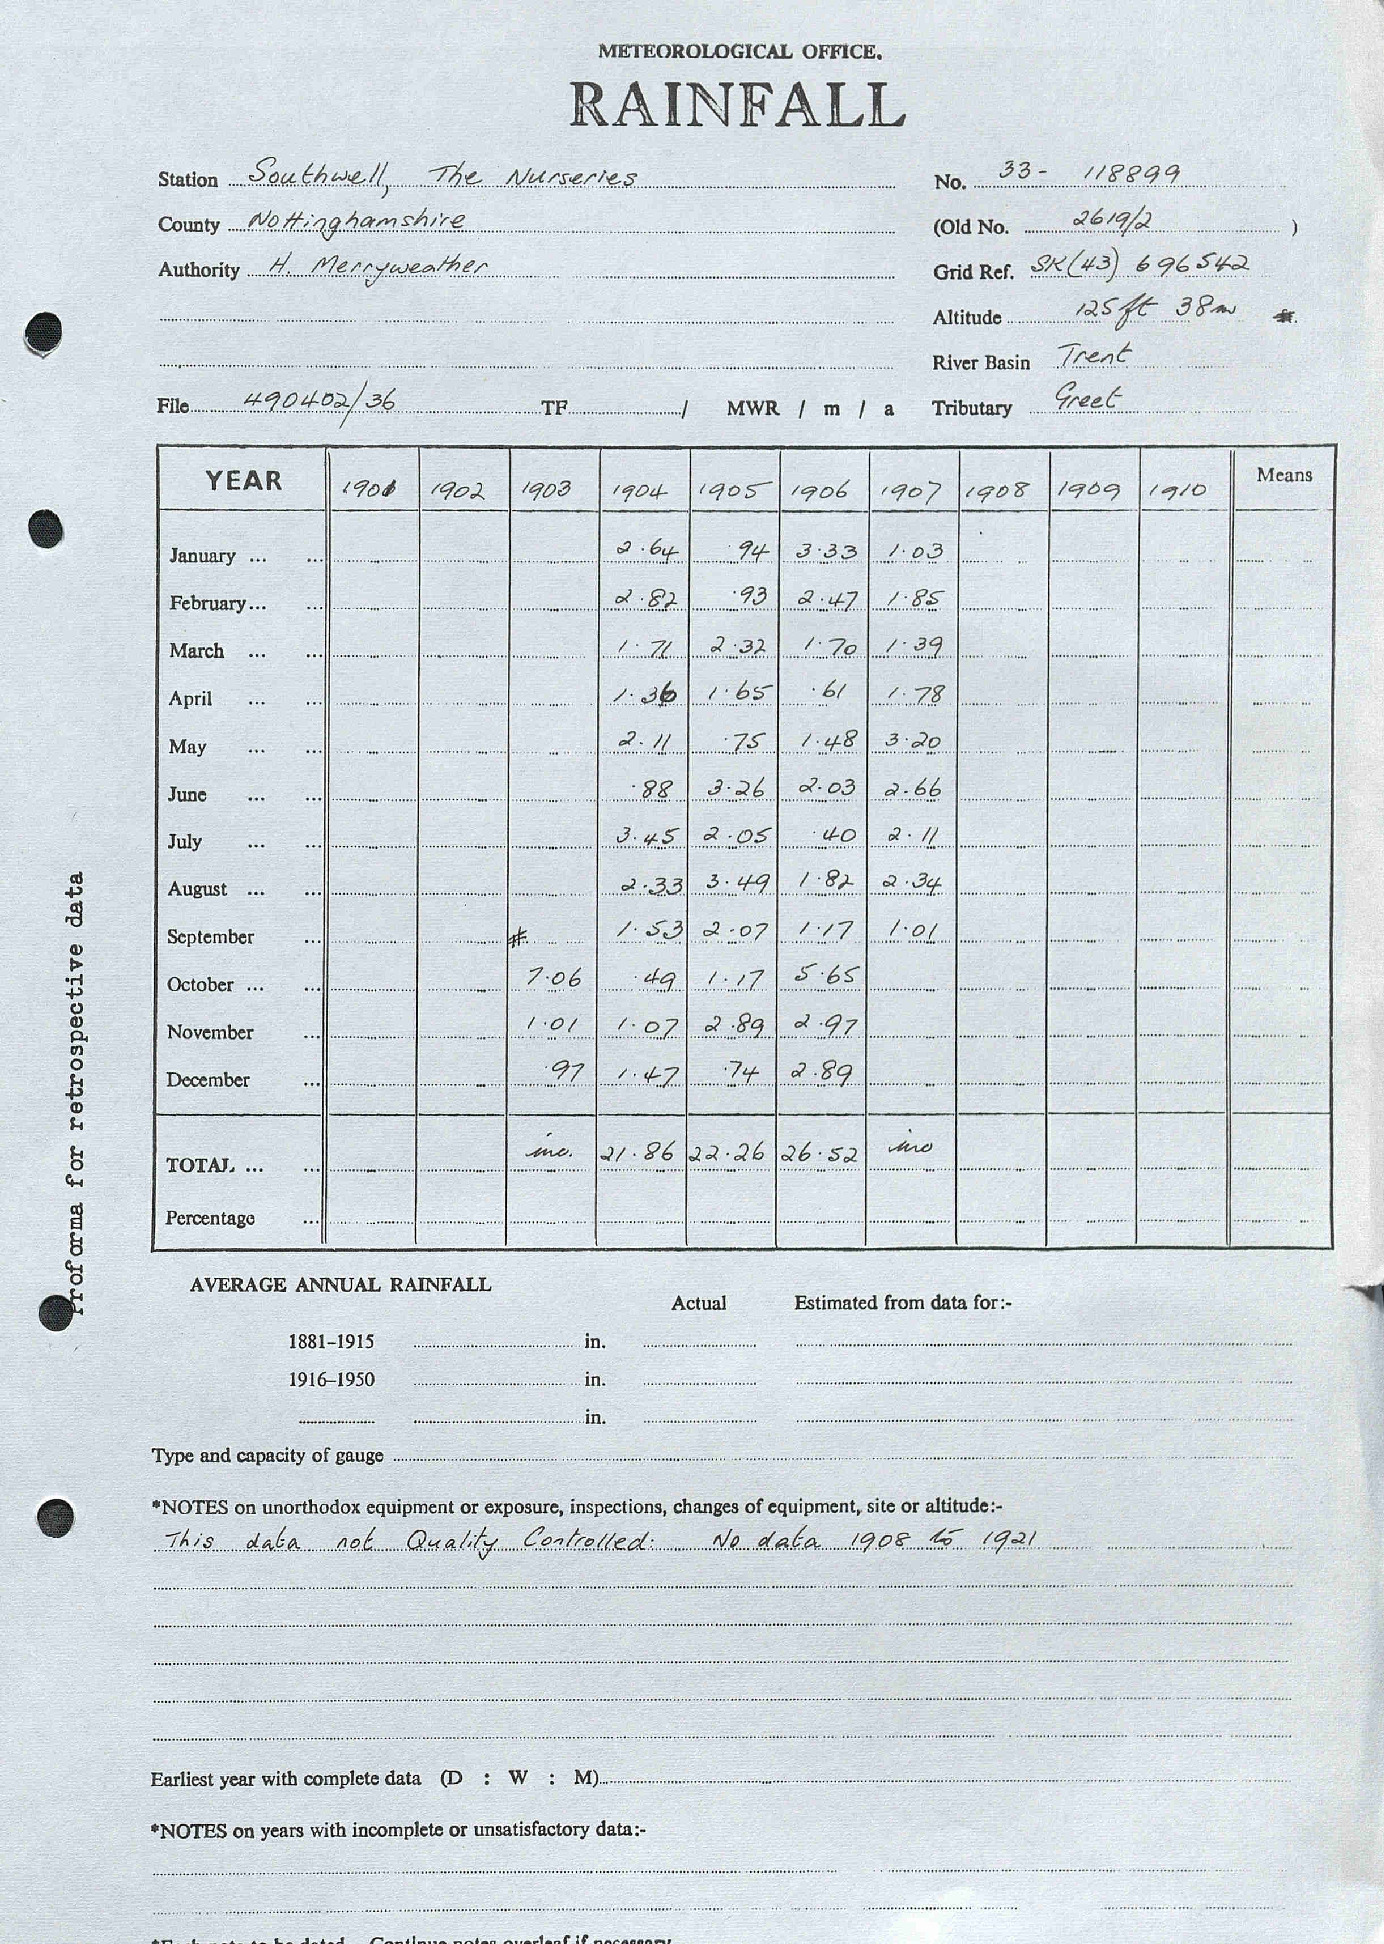 METEOROLOGICAL OFFICE.
RAINFALL
Station Southwell, The Nurseries No. 33- 118899
County Nottinghamshire (Old No. 2619/2 )
Authority H. Merryweather Grid Ref. SK(43) 696542
Altitude 125 ft 38m
River Basin Trent
File 490402/36 TF / MWR / m / a Tributary Greet
YEAR 1901 1902 1903 1904 1905 1906 1907 1908 1909 1910 Means
January ... ... 2.64 .94 3.33 1.03
February... ... 2.82 .93 2.47 1.85
March ... ... 1.71 2.32 1.70 1.39
April ... ... 1.36 1.65 .61 1.78
May ... ... 2.11 .75 1.48 3.20
June ... ... .88 3.26 2.03 2.66
July ... ... 3.45 2.05 .40 2.11
August ... ... 2.33 3.49 1.82 2.34
September ... # 1.53 2.07 1.17 1.01
October ... ... 7.06 .49 1.17 5.65
November ... 1.01 1.07 2.89 2.97
December ... .97 1.47 .74 2.89
TOTAL ... ... inc. 21.86 22.26 26.52 inc
Percentage ...
Proforma for retrospective data
AVERAGE ANNUAL RAINFALL
Actual Estimated from data for:-
1881-1915 in.
1916-1950 in.
in.
Type and capacity of gauge
*NOTES on unorthodox equipment or exposure, inspections, changes of equipment, site or altitude:-
This data not Quality Controlled. No data 1908 to 1921
Earliest year with complete data (D : W : M)
*NOTES on years with incomplete or unsatisfactory data:-
*Each note to be dated. Continue notes overleaf if necessary